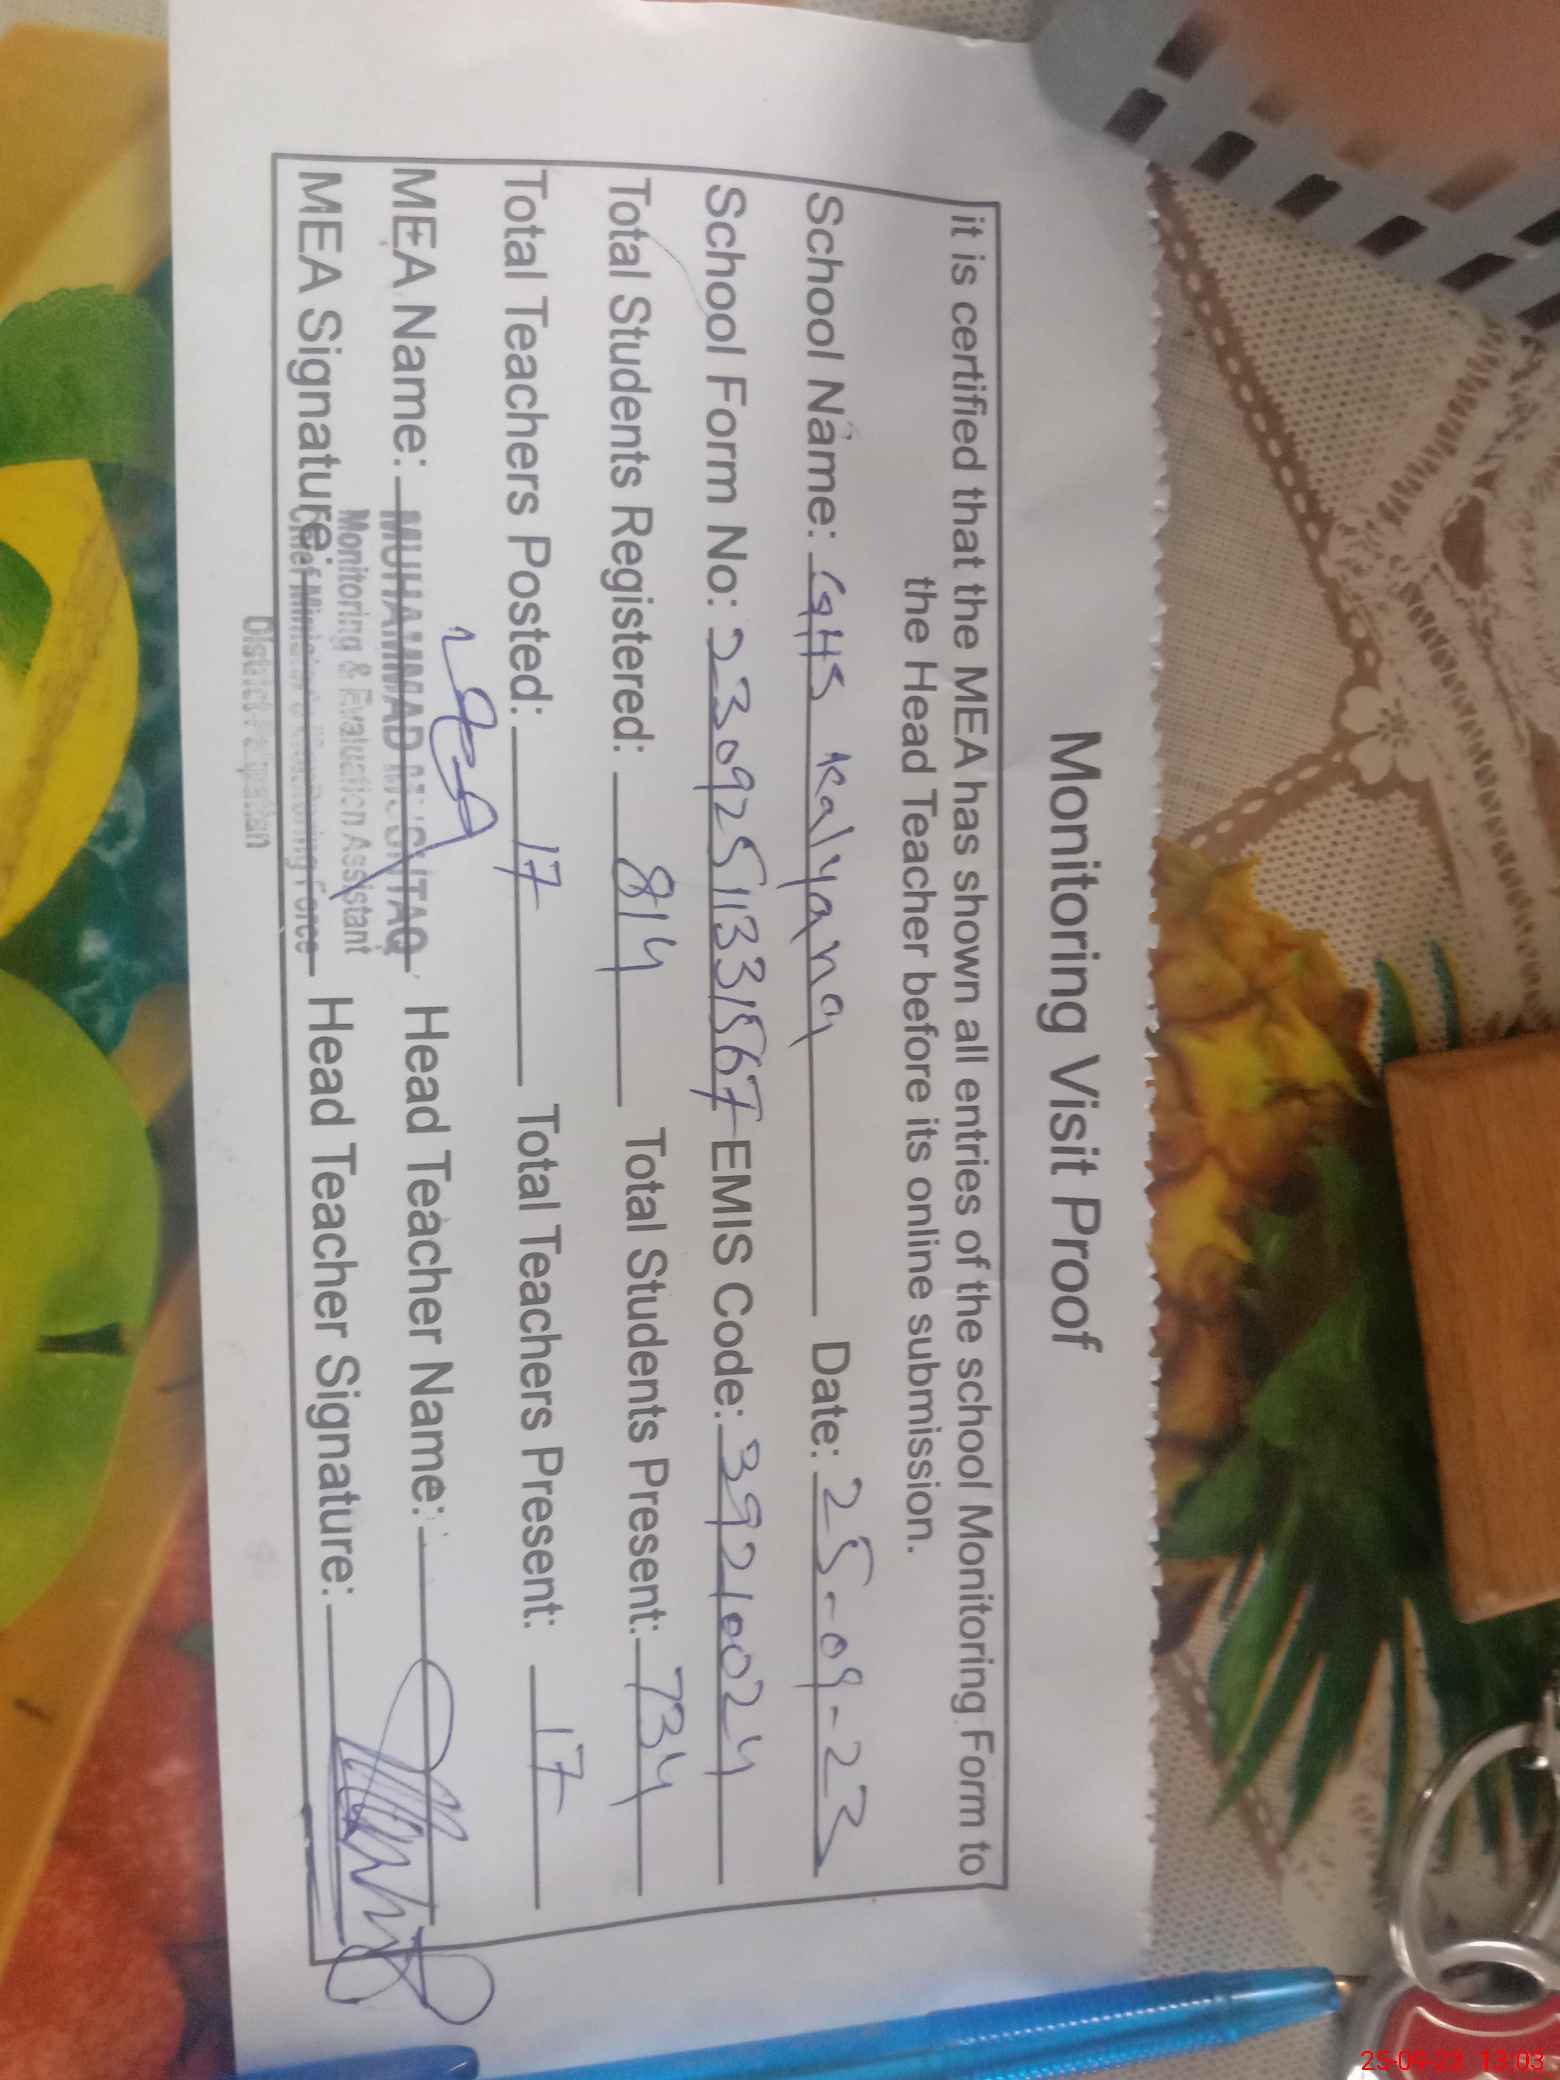 Monitoring Visit Proof
it is certified that the MEA has shown all entries of the school Monitoring Form to
the Head Teacher before its online submission.
School Name: GHS Kalyana Date: 25-09-23
School Form No: 23092511331567 EMIS Code: 39210024
Total Students Registered: 814 Total Students Present: 734
Total Teachers Posted: 17 Total Teachers Present: 17
MEA Name: MUHAMMAD MUSHTAQ Head Teacher Name:
Monitoring & Evaluation Assistant
MEA Signature: Chief Minister's Monitoring Force Head Teacher Signature:
District Pakpattan
25-09-23 13:03